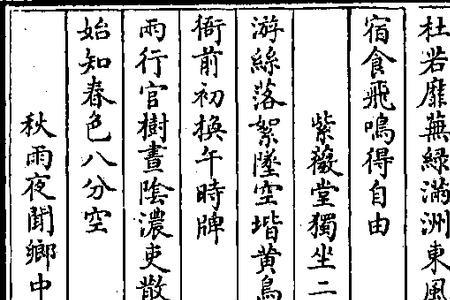 杜若靡蕪綠滿洲東風
宿食飛鳴得自由
紫薇堂獨坐二
游絲落絮墜空堦黄鳥
衙前初換午時牌
兩行官樹晝陰濃吏散
始知春色八分空
秋雨夜聞鄉中